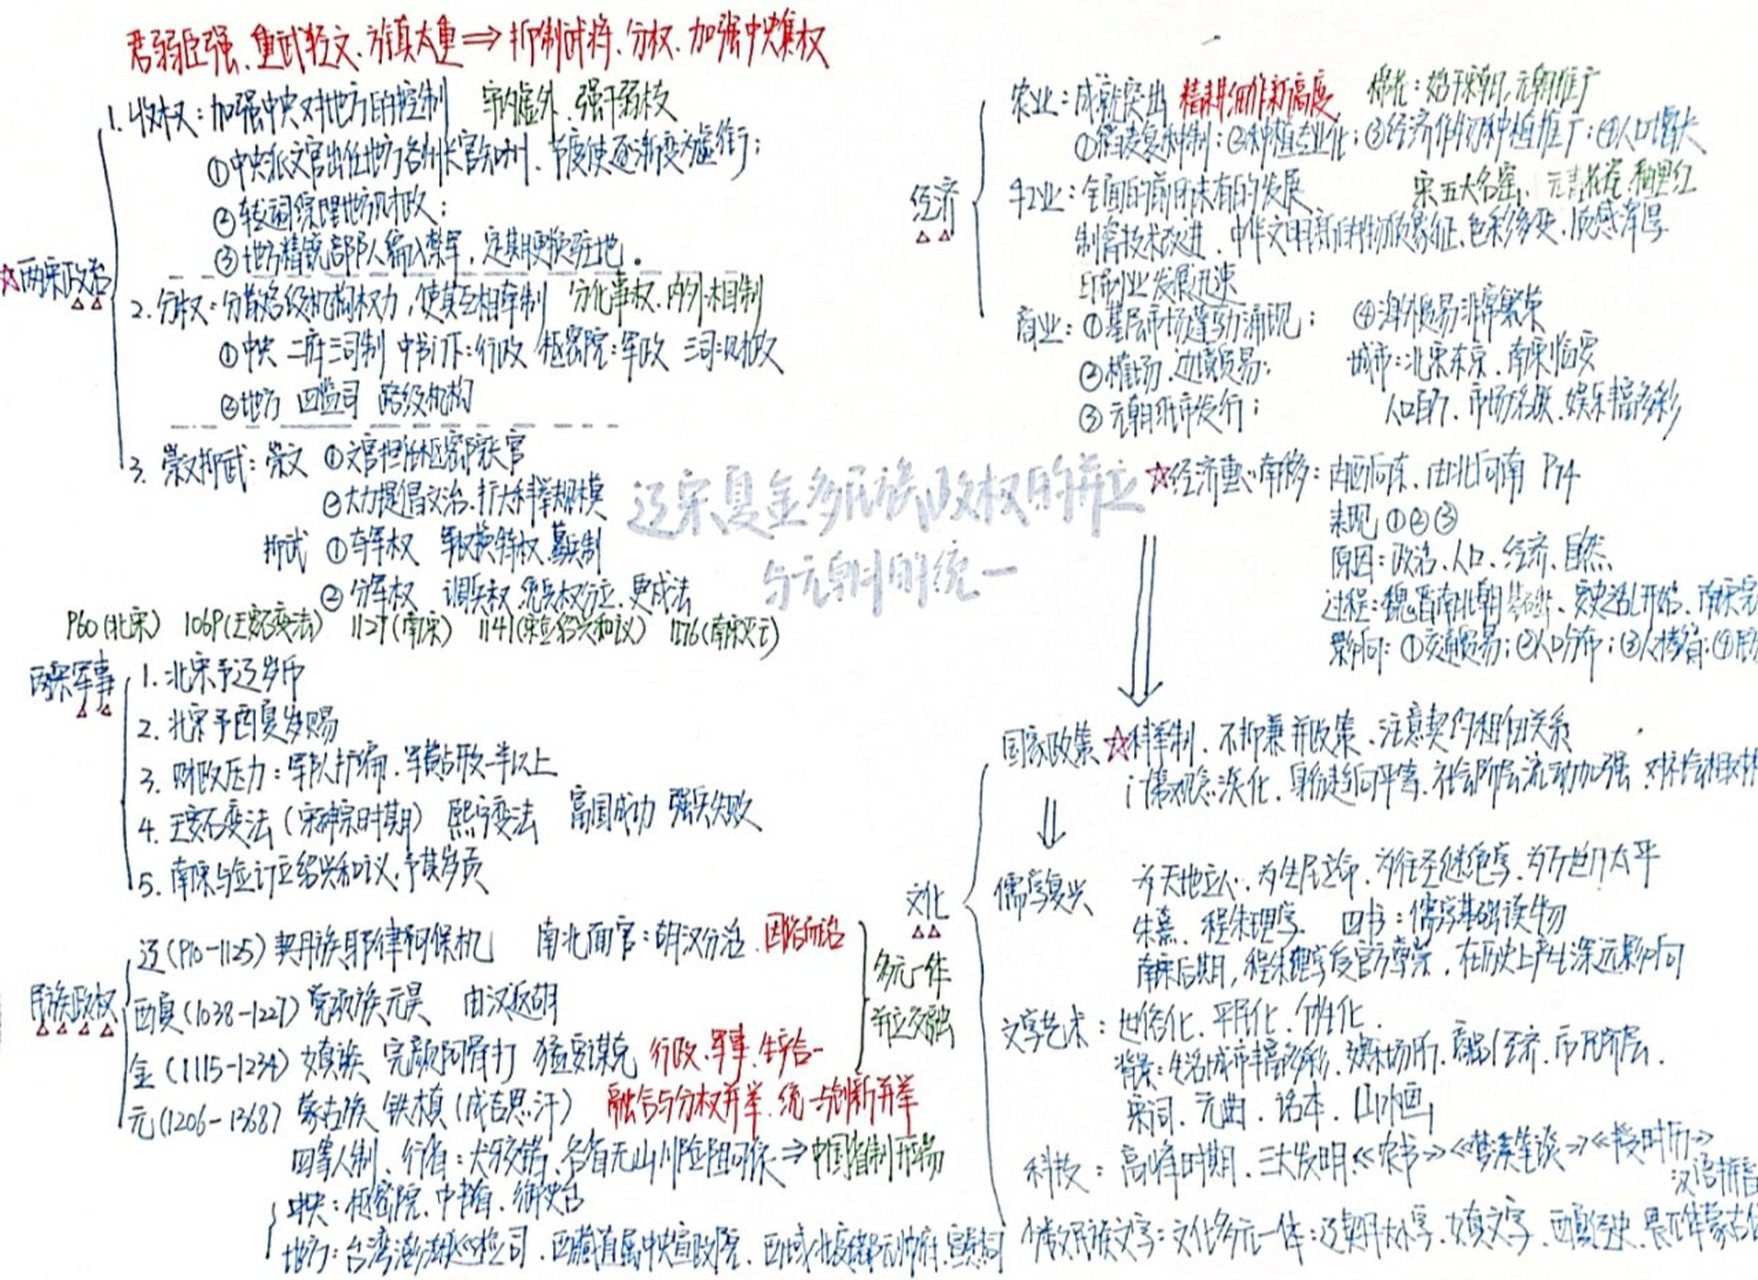 君弱臣强、重武轻文、方镇太重⇒抑制武将、分权、加强中央集权
☆两宋政治
1.收权：加强中央对地方的控制 守内虚外、强干弱枝
①中央派文官出任地方各州长官知州、节度使逐渐变为虚衔；
②转运司管理地方财政；
③地方精锐部队编入禁军，定期更换驻地。
2.分权：分散各级机构权力，使其互相牵制 分化事权、内外相制
①中央 二府三司制 中书门下：行政 枢密院：军政 三司：财政
②地方 四监司 路级机构
3.崇文抑武：崇文 ①文官担任枢密院长官
②大力提倡文治、扩大科举规模
抑武 ①夺军权 军权换特权、募兵制
②分军权 调兵权 统兵权分立、更戍法
960(北宋) 1069(王安石变法) 1127(南宋) 1141(宋金绍兴和议) 1276(南宋灭亡)
两宋军事
1.北宋予辽岁币
2.北宋予西夏岁赐
3.财政压力：军队扩编、军费占税一半以上
4.王安石变法(宋神宗时期) 熙宁变法 富国成功 强兵失败
5.南宋与金订立绍兴和议、予其岁贡
民族政权
辽(910-1125)契丹族耶律阿保机 南北面官：胡汉分治、因俗而治
西夏(1038-1227)党项族元昊 由汉返胡
金(1115-1234)女真族 完颜阿骨打 猛安谋克 行政、军事、生产合一
多元一体
并立交融
元(1206-1368)蒙古族 铁木真(成吉思汗) 融合与分权并举、统一与创新并举
四等人制、行省：犬牙交错、各省无山川险阻可依⇒中国省制开端
中央：枢密院、中书省、御史台
地方：台湾澎湖巡检司、西藏直属中央宣政院、西域北庭都元帅府、宣慰司
辽宋夏金多民族政权的并立
与元朝的统一
经济
农业：成就突出 精耕细作新高度 棉花：始于宋朝，元朝推广
①稻麦复种制；②种植专业化；③经济作物种植推广；④人口增长
手工业：全面的前所未有的发展 宋五大名窑、元青花瓷 釉里红
制瓷技术改进、中华文明新的物质象征、色彩多变、质感浑厚
印刷业发展迅速
商业：①基层市场蓬勃涌现； ④海外贸易非常繁荣
②榷场、边境贸易； 城市：北宋东京、南宋临安
③元朝纸币发行； 人口百万、市场活跃、娱乐丰富多彩
☆经济重心南移：由西向东、由北向南 P74
表现①②③
原因：政治、人口、经济、自然
过程：魏晋南北朝基础、安史之乱开始、南宋完
影响：①交通贸易；②人口分布；③人才教育；④
文化
国家政策 ☆科举制、不抑兼并政策、注意契约租佃关系
门第观念淡化、身份趋向平等、社会阶层流动加强、对
儒学复兴 为天地立心、为生民立命、为往圣继绝学、为万世开太平
朱熹、程朱理学 四书：儒学基础读物
南宋后期，程朱理学受官方尊崇、在历史上产生深远影响
文学艺术：世俗化、平民化、个性化、
背景：生活城市丰富多彩、娱乐场所、商品经济、市民阶层、
宋词、元曲、话本、山水画
科技：高峰时期、三大发明《农书》《梦溪笔谈》《授时历》
汉语拼音
少数民族文字：文化多元一体：辽契丹大小字、女真文字、西夏